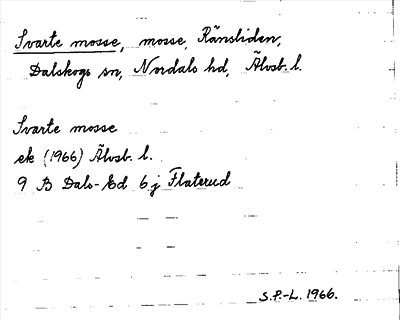 Svarte mosse, mosse, Ränsliden,
Dalskogs sn, Nordals hd, Älvsb. l.
Svarte mosse
ek (1966) Älvsb. l.
9 B Dals-Ed 6 j Flaterud
S.P.-L. 1966.